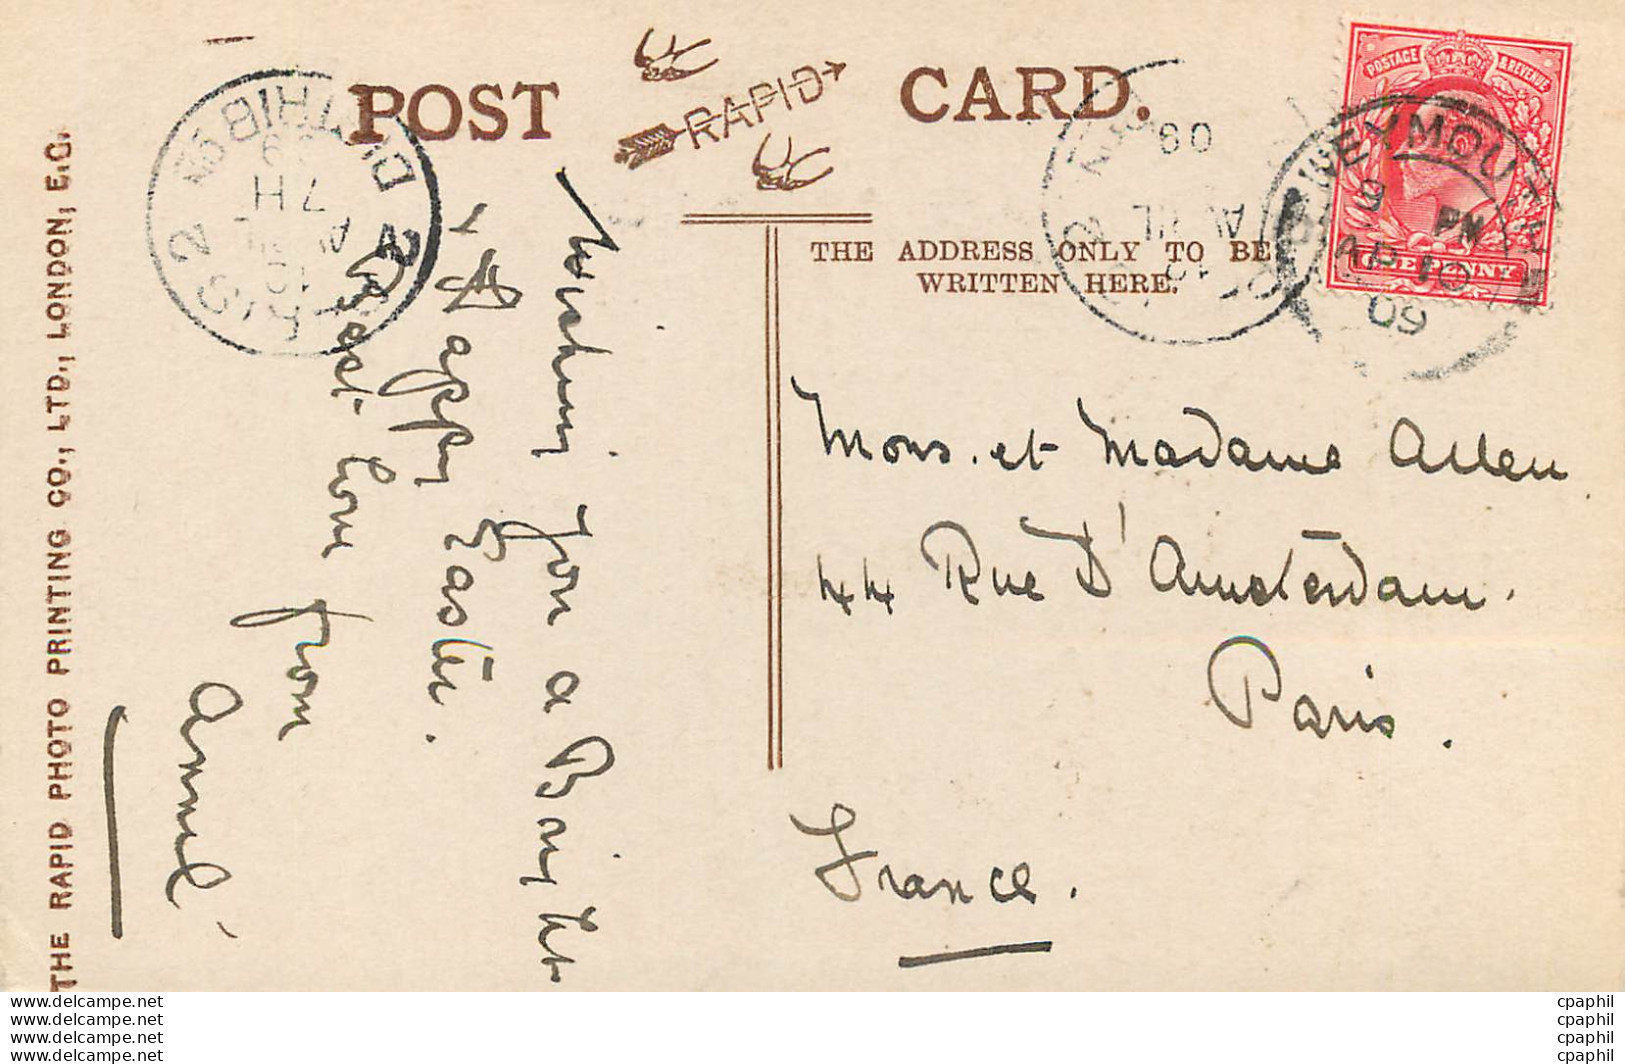 POST CARD.
RAPID
THE ADDRESS ONLY TO BE
WRITTEN HERE.
POSTAGE & REVENUE
ONE PENNY
WEYMOUTH
9 PM
AP 10
09
PARIS 2
DISTRIB
7H
10
AVRIL
09
THE RAPID PHOTO PRINTING CO., LTD., LONDON, E.C.
Wishing you a Bright
& Happy Easter.
Best love from
Annie
Mons. et Madame Allen
44 Rue D'Amsterdam.
Paris.
France.
www.delcampe.net
www.delcampe.net
www.delcampe.net
www.delcampe.net
cpaphil
cpaphil
cpaphil
cpaphil